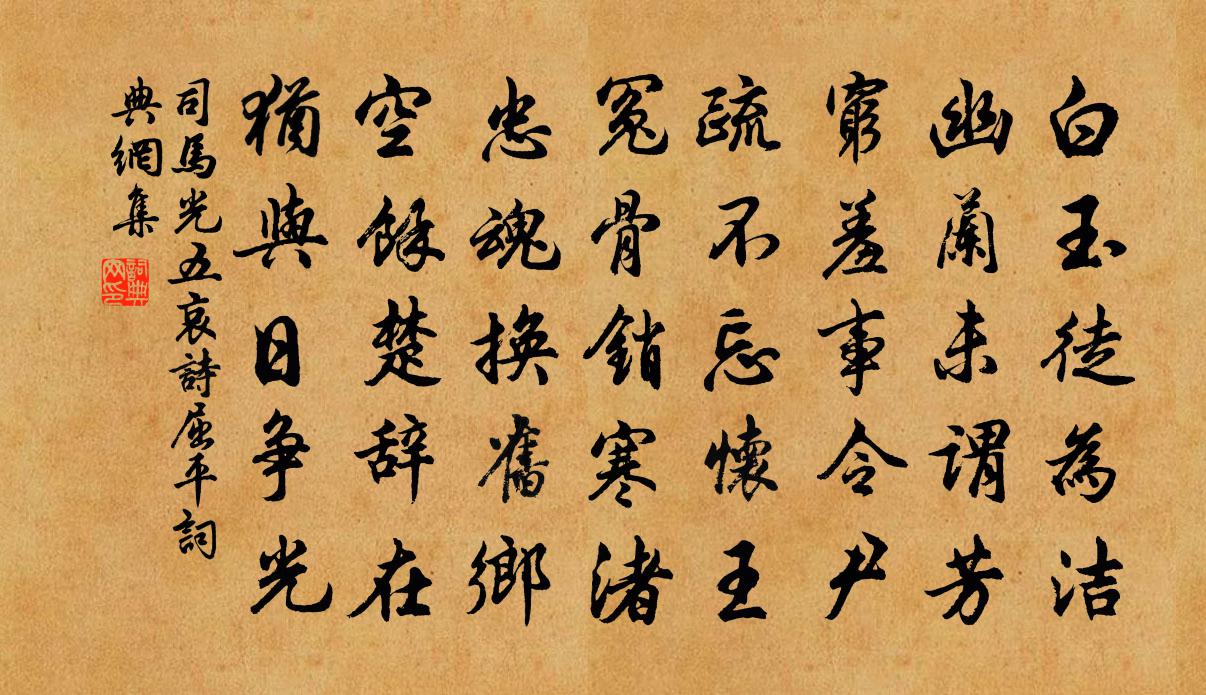 白玉徒為洁
幽蘭未謂芳
窮羞事令尹
疏不忘懷王
冤骨銷寒渚
忠魂換舊鄉
空餘楚辞在
猶與日争光
司馬光五哀詩屈平詞
典網集
詞典
网印